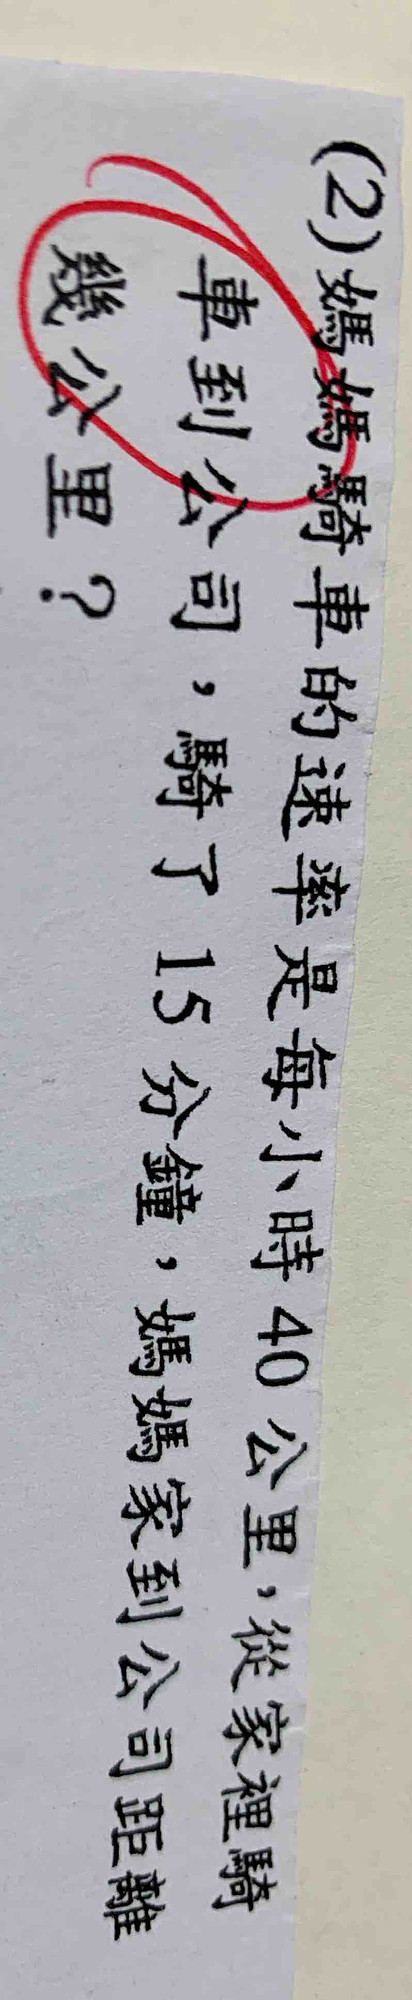 (2)媽媽騎車的速率是每小時40公里,從家裡騎
車到公司,騎了15分鐘,媽媽家到公司距離
幾公里?